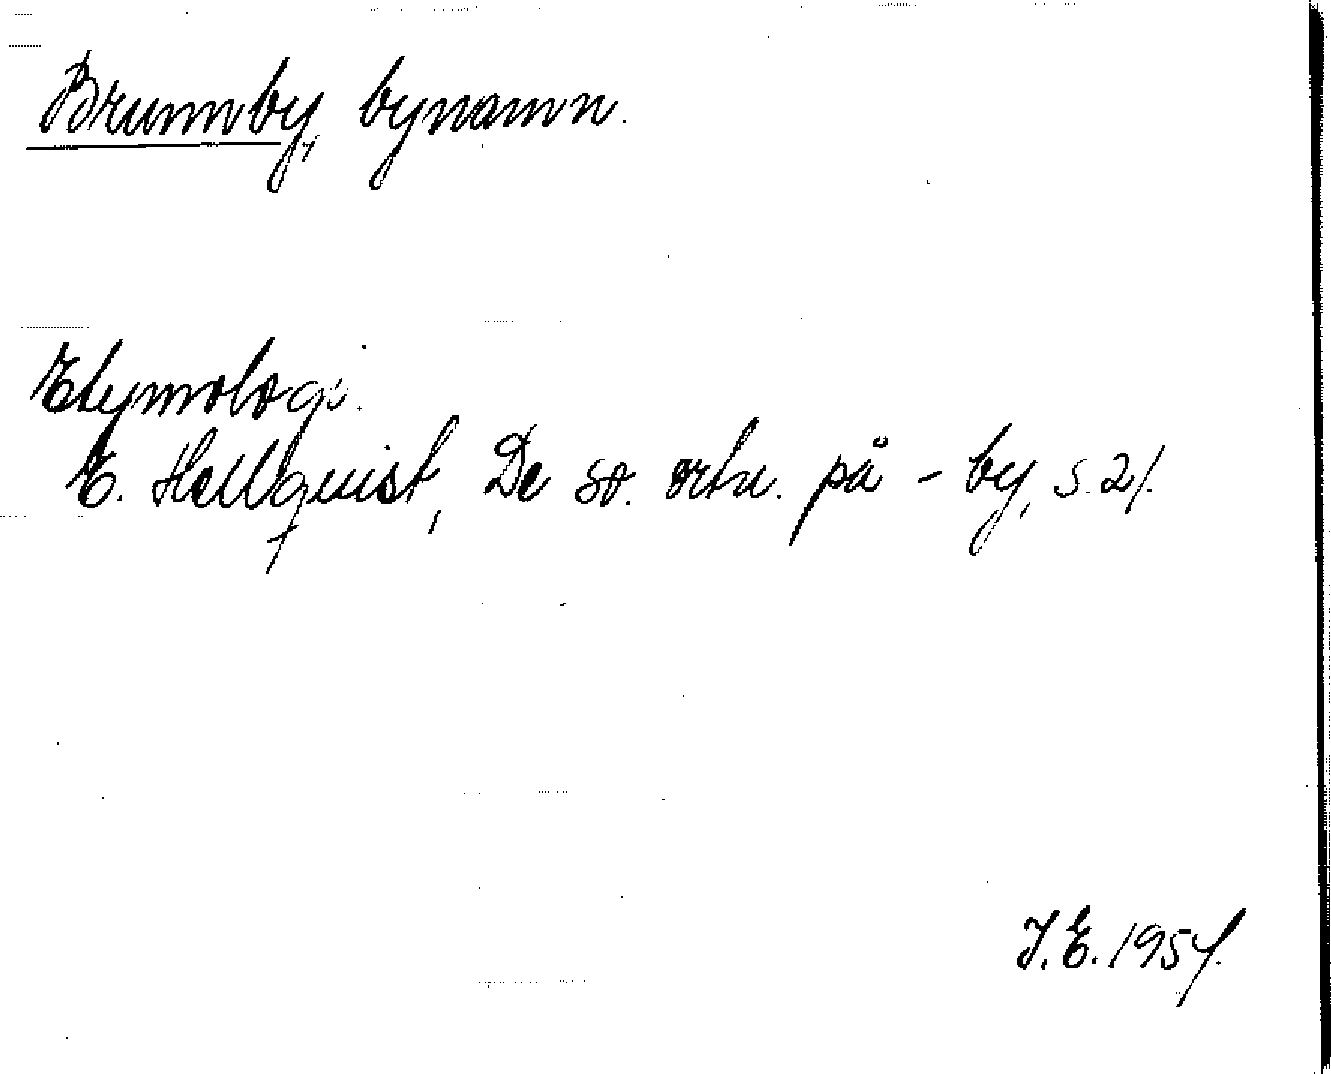 Brumby, bynamn.
Etymologi.
E. Hellquist, De sv. ortn. på - by, s. 21.
J.E. 1957.